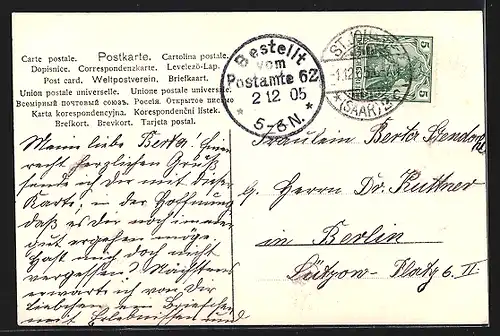 Carte postale. Postkarte. Cartolina postale.
Dopisnice. Correspondenzkarte. Levelező-Lap.
Post card. Weltpostverein. Briefkaart.
Union postale universelle. Unione postale universale.
Всемірный почтовый союзъ. Россія. Открытое письмо
Karta korespondencyjna. Korespondenční lístek.
Brefkort. Brevkort. Tarjeta postal.
Bestellt
vom
Postamte 62
2 12 05
* 5-6 N. *
ST. JOH
-1.12.05
(SAAR) 2 c
5
5
Meine liebe Berta! Einen
recht herzlichen Gruß
sende ich dir mit dieser
Karte, in der Hoffnung
daß es dir noch immer
gut ergehen möge.
Hast mich doch nicht
vergessen? Nächstens
erwarte ich von dir
Liebchen ein Briefchen
mit Erlebnissen und
Fräulein Berta
b/ Herrn Dr. Kuttner
in Berlin
Lützow-Platz 6. II.